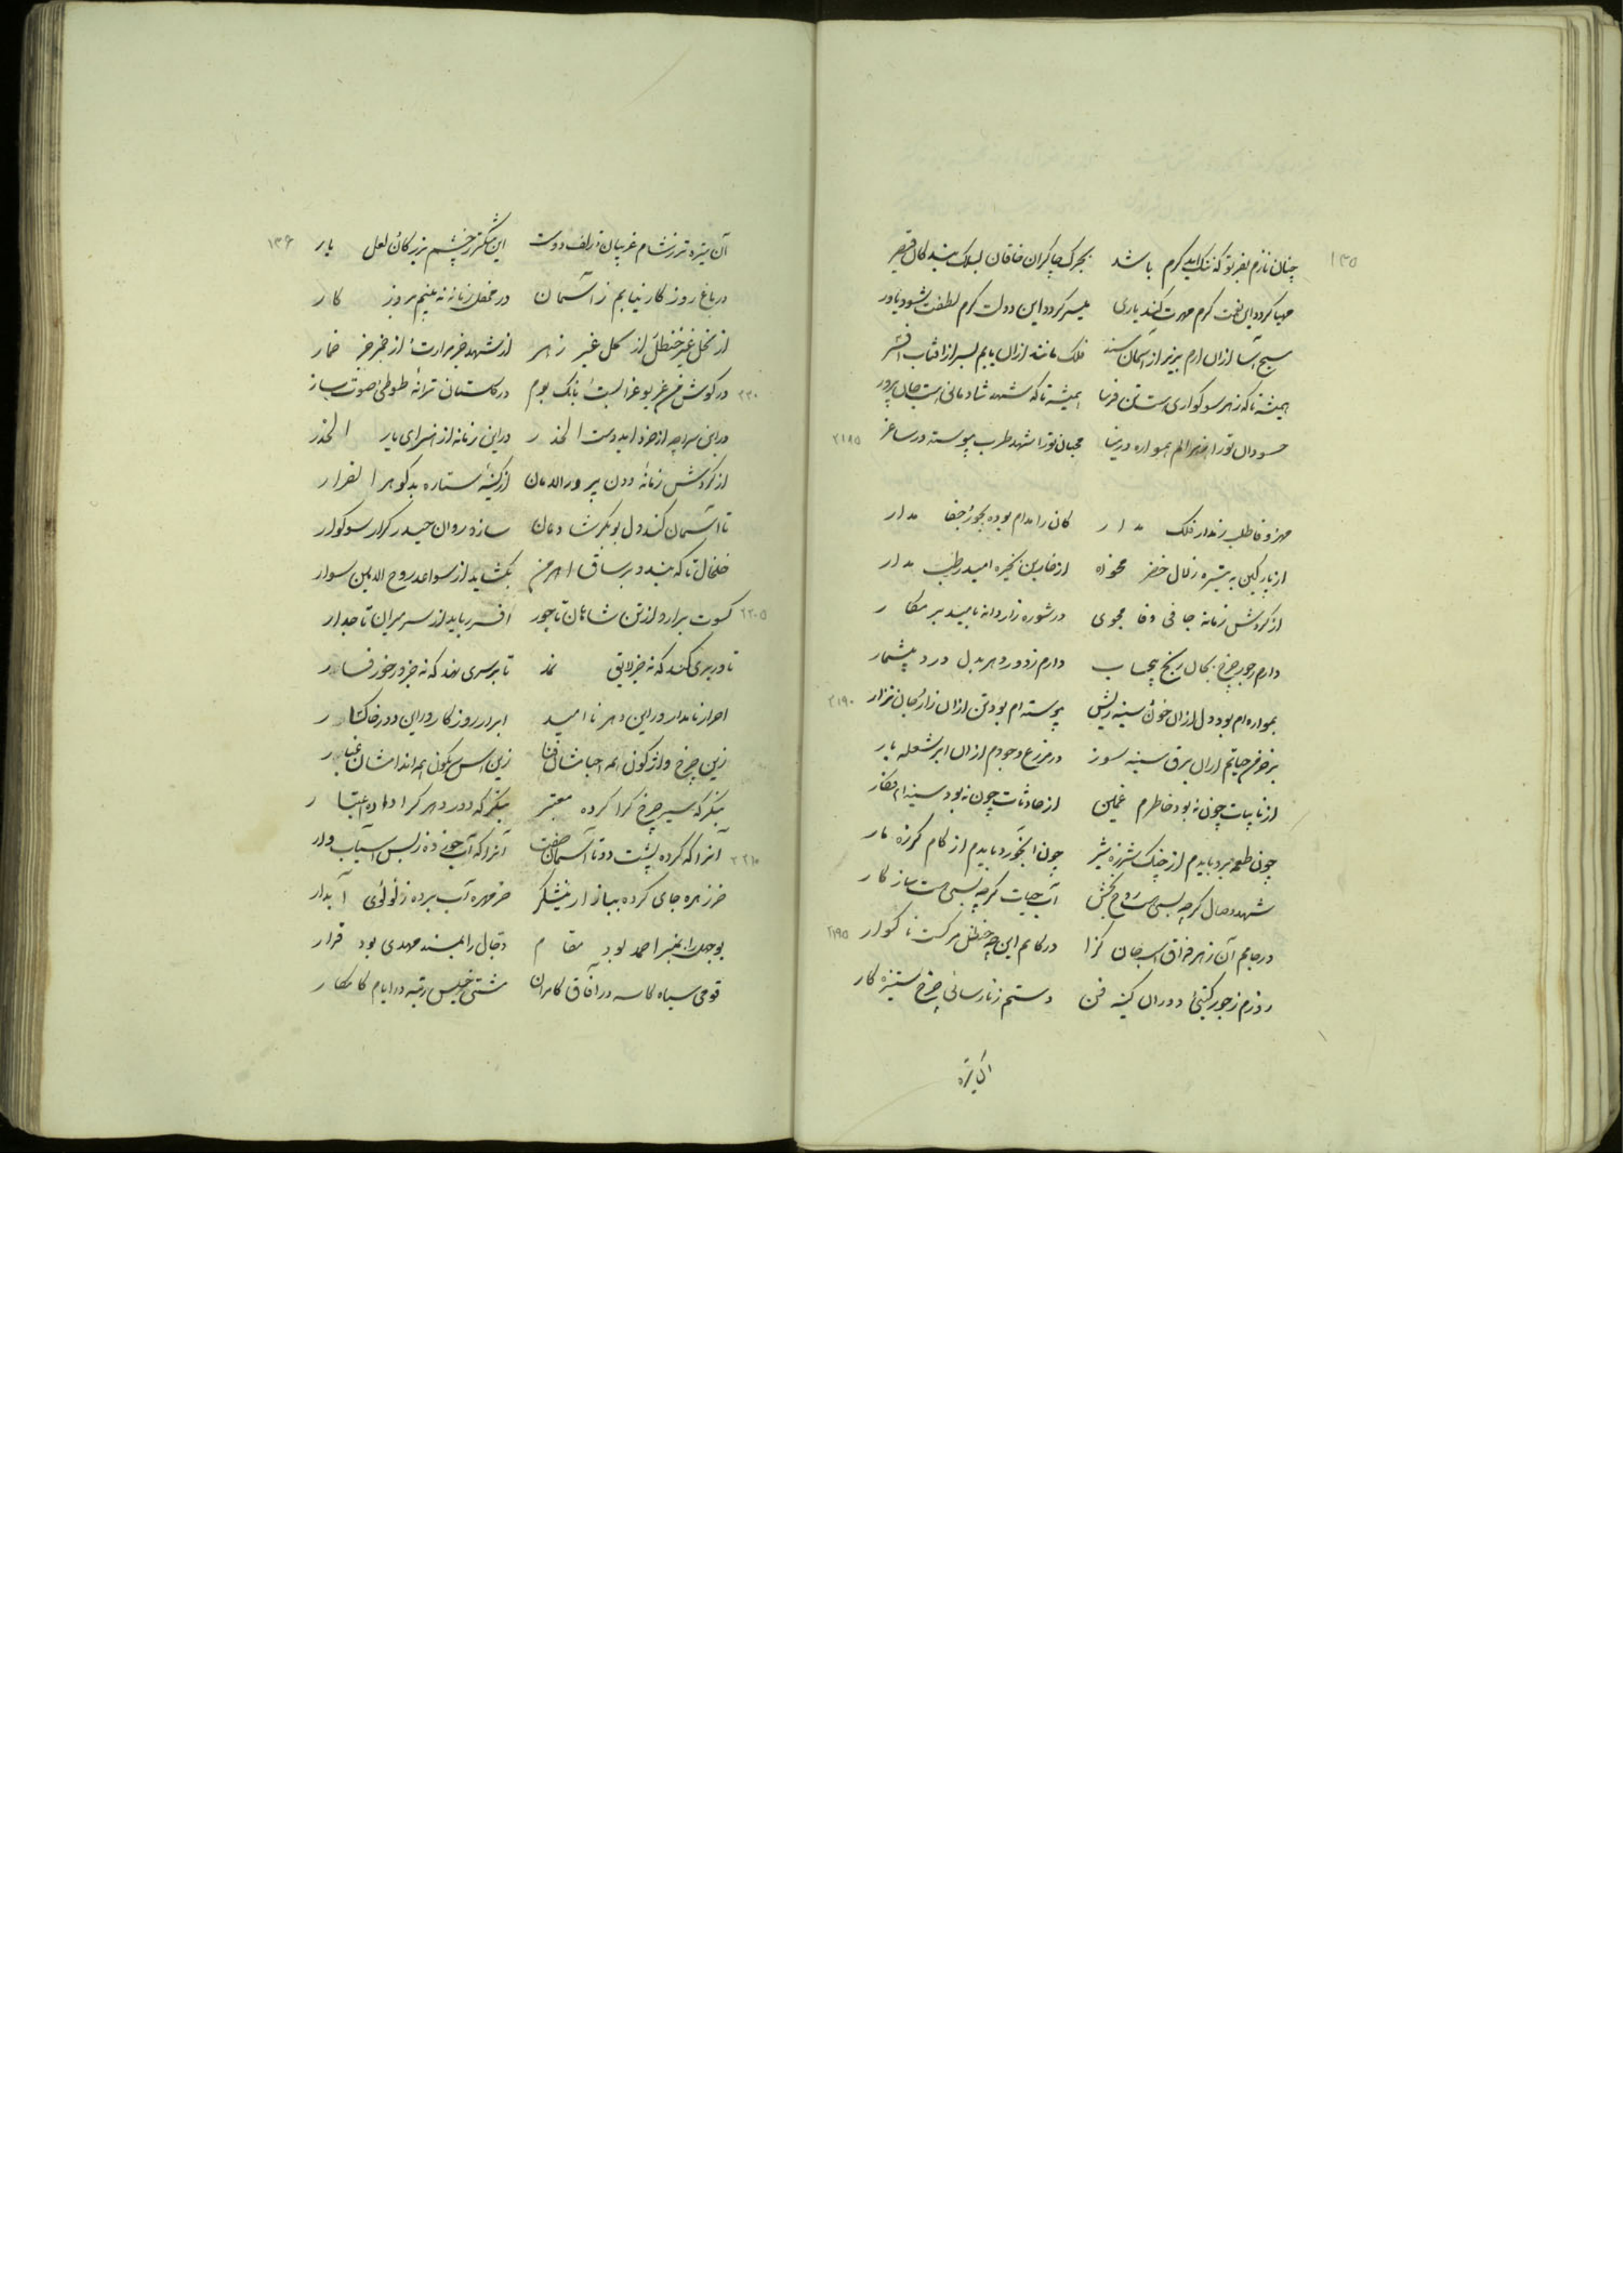 ۱۳۵
چنان نازم بفر تو که ننگ آید گرم باشد بجرگ چاکران خاقان بسلک بندگان قیصر
مهیا گردد این نعمت گرم مهرت کند یاری میسر گردد این دولت گرم لطفت شود یاور
مسیح آسا ازان آرم بزیر از آسمان مسند فلک مانند ازان یابم بسر از آفتاب افسر
همیشه تا که زهر سوکواری است تن فرسا همیشه تا که شهد شادمانی است جان پرور
حسودان تو را زهر الم همواره در مینا محبان تو را شهد طرب پیوسته در ساغر ۲۱۸۵
مهر و وفا طلب ز مدار فلک مدار کان را مدام بوده بجور و جفا مدار
از پارگین به تیشره زلال خضر مخواه از خاربن بخیره امید رطب مدار
از گردش زمانه جافی وفا مجوی در شوره زار دانه بامید بر مکار
دارم ز جور چرخ بجان رنج بیحساب دارم ز دور دهر بدل درد بیشمار
همواره ام بود دل ازان خون سینه ریش پیوسته ام بود تن ازان زار جان نزار ۲۱۹۰
بر خرمن حیاتم ازان برق سینه سوز در مزرع وجودم ازان ابر شعله بار
از نایبات چون نبود خاطرم غمین از حادثات چون نبود سینه ام فکار
چون طعمه برد بایدم از چنگ شرزه شیر چون آبخورد بایدم از کام گرزه مار
شهد وصال گرچه بسی هست روح بخش آب حیات گرچه بسی هست سازگار
در جامم آن ز هر فراق است جان گزا در کامم این چو حنظل مرگست ناگوار ۲۱۹۵
روزم ز جور کینی دوران کینه فن دستم ز نارسائی چرخ ستیزه کار
آن تیره
آن تیره تر ز شام غریبان و زلف دوست این تنگتر ز چشم بزرگان و لعل یار ۱۳۶
در باغ روزگار نیابم ز آسمان در محفل زمانه نه بینم بروزگار
از نخل غیر حنظل از گل غیر زهر از شهد جز مرارت از خمر جز خمار
در گوش من غریو غرابست بانگ بوم در گلستان ترانه طوطی صوت سار ۲۲۰۰
در این سراچه از خرد ای دوست الحذر در این زمانه از هنر ای یار الحذر
از گردش زمانه دون پرور الامان از کینه ستاره بدگوهر الفرار
تا آسمان کند دل بوبکر شادمان سازد روان حیدر کرار سوکوار
خلخال تا که بندد بر ساق اهرمن بگشاید از سواعد روح الامین سوار
کسوت برآرد از تن شاهان تاجور افسر رباید از سر میران تاجدار ۲۲۰۵
تا در بری کند که نه جز لایق نمد تا بر سری نهد که نه جز در خور فسار
احرار نامدار در این دهر ناامید ابرار روزگار در این دور خاکسار
زین چرخ واژگون همه احبا شان فنا زین اس نیگون همه اندامشان غبار
بنگر که سیر چرخ کرا کرده معتبر بنگر که دور دهر کرا داده اعتبار
آنرا که کرده پشت دوتا آسمان صفت آنرا که آب خورده ز بس آسیاب وار ۲۲۱۰
خرزهره جای کرده ببازار نیشکر خرمهره آب برده ز لولوی آبدار
بوجهل را بمنبر احمد بود مقام دجال را بمسند مهدی بود قرار
قومی سیاه کاسه در آفاق کامران مشتی خسیس رتبه در ایام کامکار